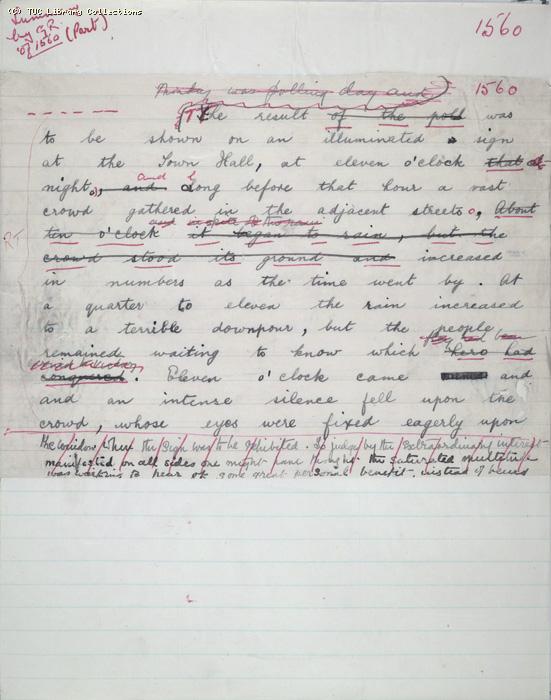 (C) TUC Library Collections
by F.R.
of 1560 (Part)
1560
1560
Thursday was polling day and
The result of the poll was
to be shown on an illuminated sign
at the Town Hall, at eleven o'clock that at
and L
night, and long before that hour a vast
crowd gathered in the adjacent streets. About
and in spite of the rain
RT ten o'clock it began to rain, but the
crowd stood its ground and increased
in numbers as the time went by. At
a quarter to eleven the rain increased
to a terrible downpour, but the people
remained waiting to know which hero had
conquered. Eleven o'clock came and
and an intense silence fell upon the
crowd, whose eyes were fixed eagerly upon
the window where the sign was to be exhibited. To judge by the extraordinary interest
manifested on all sides one might have thought the saturated multitude
was waiting to hear of some great personal benefit, instead of being